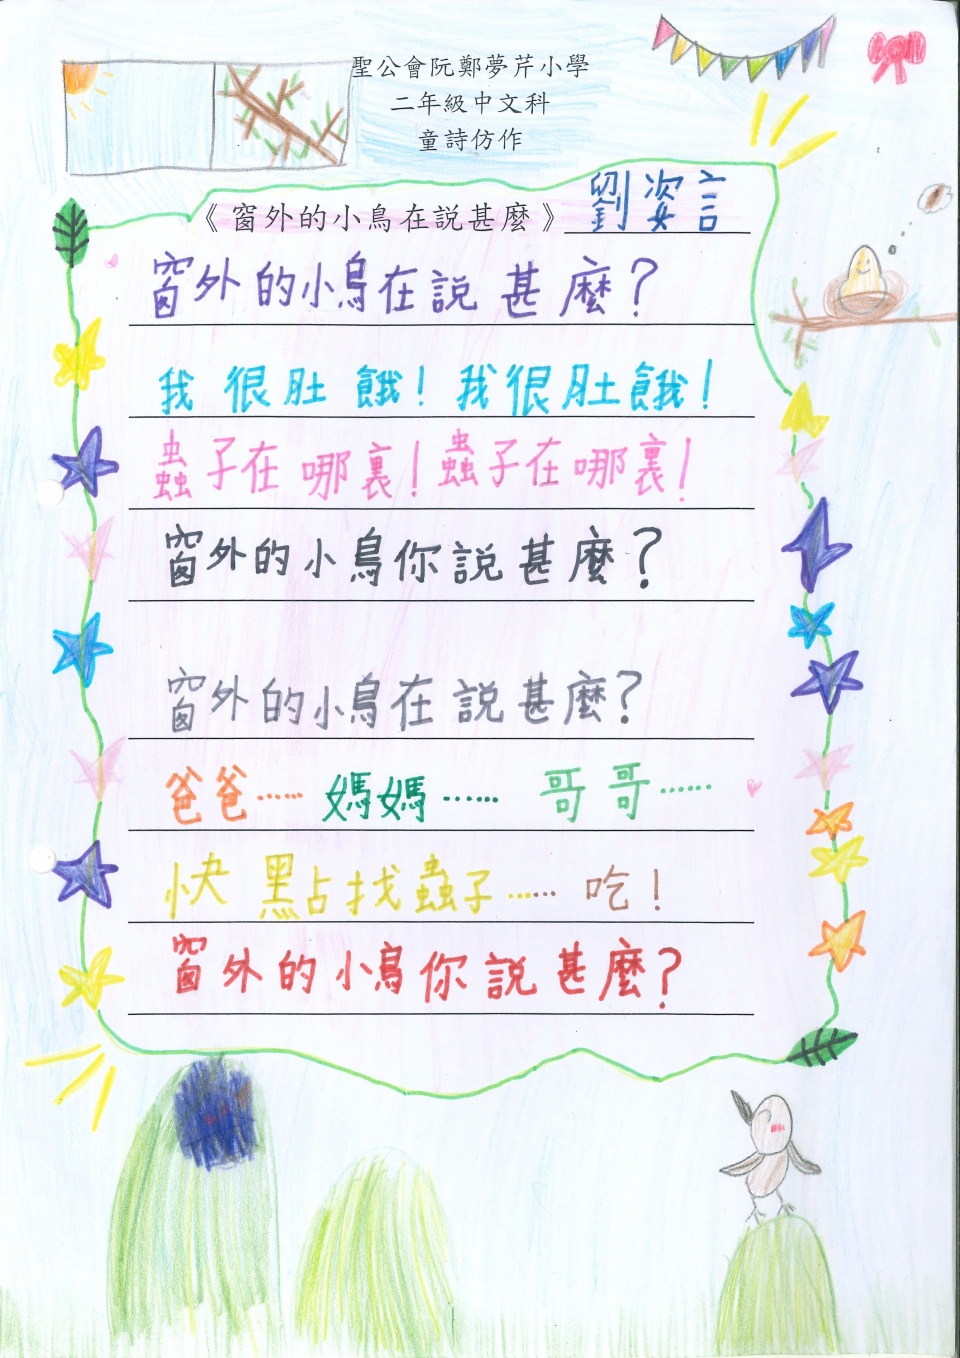 聖公會阮鄭夢芹小學
二年級中文科
童詩仿作
《窗外的小鳥在說甚麼》劉姿言
窗外的小鳥在說甚麼？
我很肚餓！我很肚餓！
蟲子在哪裏！蟲子在哪裏！
窗外的小鳥你說甚麼？
窗外的小鳥在說甚麼？
爸爸……媽媽……哥哥……
快點找蟲子……吃！
窗外的小鳥你說甚麼？